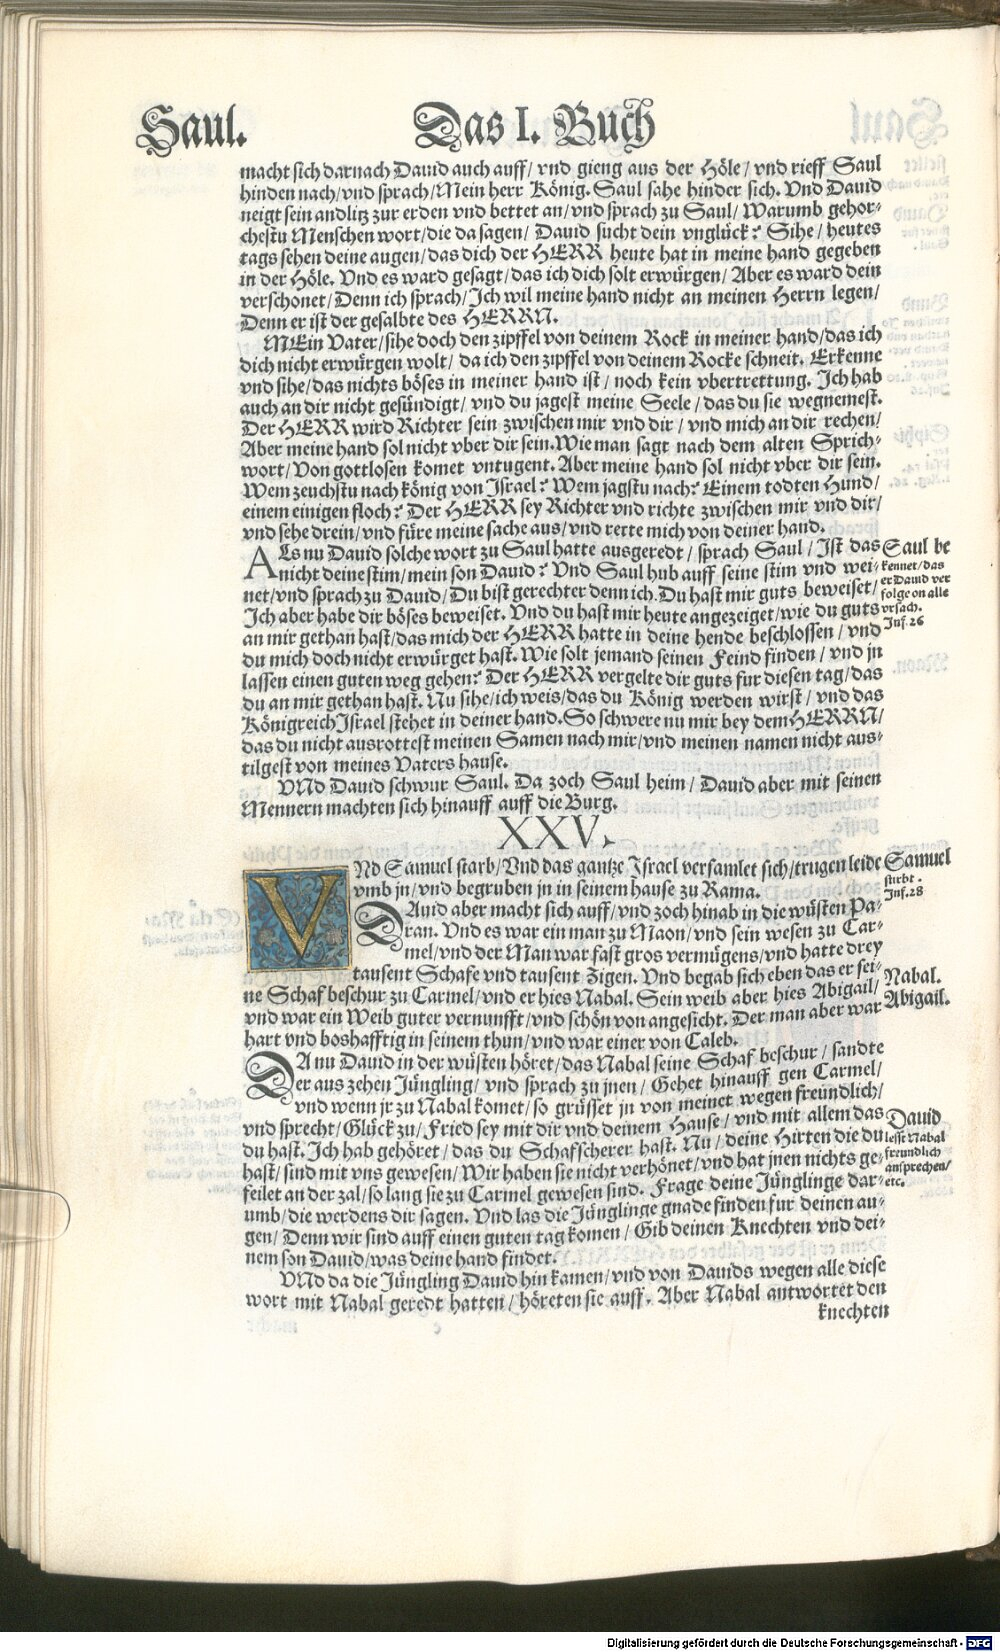 Saul.
Das I. Buch
macht sich darnach Dauid auch auff/ vnd gieng aus der Höle/ vnd rieff Saul
hinden nach/ vnd sprach/ Mein herr König. Saul sahe hinder sich. Vnd Dauid
neigt sein andlitz zur erden vnd bettet an/ vnd sprach zu Saul/ Warumb gehor-
chestu Menschen wort/ die da sagen/ Dauid sucht dein vnglück? Sihe/ heutes
tags sehen deine augen/ das dich der HERR heute hat in meine hand gegeben
in der Höle. Vnd es ward gesagt/ das ich dich solt erwürgen/ Aber es ward dein
verschonet/ Denn ich sprach/ Ich wil meine hand nicht an meinen Herrn legen/
Denn er ist der gesalbte des HERRN.
MEin Vater/ sihe doch den zipffel von deinem Rock in meiner hand/ das ich
dich nicht erwürgen wolt/ da ich den zipffel von deinem Rocke schneit. Erkenne
vnd sihe/ das nichts böses in meiner hand ist/ noch kein vbertrettung. Ich hab
auch an dir nicht gesündigt/ vnd du jagest meine Seele/ das du sie wegnemest.
Der HERR wird Richter sein zwischen mir vnd dir/ vnd mich an dir rechen/
Aber meine hand sol nicht vber dir sein. Wie man sagt nach dem alten Sprich-
wort/ Von gottlosen komet vntugent. Aber meine hand sol nicht vber dir sein.
Wem zeuchstu nach könig von Israel? Wem jagstu nach? Einem todten Hund/
einem einigen floch? Der HERR sey Richter vnd richte zwischen mir vnd dir/
vnd sehe drein/ vnd füre meine sache aus/ vnd rette mich von deiner hand.
ALs nu Dauid solche wort zu Saul hatte ausgeredt/ sprach Saul/ Ist das
nicht deine stim/ mein son Dauid? Vnd Saul hub auff seine stim vnd wei-
net/ vnd sprach zu Dauid/ Du bist gerechter denn ich. Du hast mir guts beweiset/
Ich aber habe dir böses beweiset. Vnd du hast mir heute angezeiget/ wie du guts
an mir gethan hast/ das mich der HERR hatte in deine hende beschlossen/ vnd
du mich doch nicht erwürget hast. Wie solt jemand seinen Feind finden/ vnd jn
lassen einen guten weg gehen? Der HERR vergelte dir guts fur diesen tag/ das
du an mir gethan hast. Nu sihe/ ich weis/ das du König werden wirst/ vnd das
Königreich Israel stehet in deiner hand. So schwere nu mir bey dem HERRN/
das du nicht ausrottest meinen Samen nach mir/ vnd meinen namen nicht aus-
tilgest von meines Vaters hause.
VNd Dauid schwur Saul. Da zoch Saul heim/ Dauid aber mit seinen
Mennern machten sich hinauff auff die Burg.
Saul be
kennet/ das
er Dauid ver
folge on alle
vrsach.
Inf. 26
XXV.
VNd Samuel starb/ Vnd das gantze Israel versamlet sich/ trugen leide
vmb jn/ vnd begruben jn in seinem hause zu Rama.
DAuid aber macht sich auff/ vnd zoch hinab in die wüsten Pa-
ran. Vnd es war ein man zu Maon/ vnd sein wesen zu Car-
mel/ vnd der Man war fast gros vermügens/ vnd hatte drey
tausent Schafe vnd tausent Zigen. Vnd begab sich eben das er sei-
ne Schaf beschur zu Carmel/ vnd er hies Nabal. Sein weib aber hies Abigail/
vnd war ein Weib guter vernunfft/ vnd schön von angesicht. Der man aber war
hart vnd boshafftig in seinem thun/ vnd war einer von Caleb.
Samuel
stirbt.
Inf. 28
Nabal.
Abigail.
DA nu Dauid in der wüsten höret/ das Nabal seine Schaf beschur/ sandte
er aus zehen Jüngling/ vnd sprach zu jnen/ Gehet hinauff gen Carmel/
vnd wenn jr zu Nabal komet/ so grüsset jn von meinet wegen freundlich/
vnd sprecht/ Glück zu/ Fried sey mit dir vnd deinem Hause/ vnd mit allem das
du hast. Ich hab gehöret/ das du Schafscherer hast. Nu/ deine Hirten die du
hast/ sind mit vns gewesen/ Wir haben sie nicht verhönet/ vnd hat jnen nichts ge-
feilet an der zal/ so lang sie zu Carmel gewesen sind. Frage deine Jünglinge dar-
umb/ die werdens dir sagen. Vnd las die Jünglinge gnade finden fur deinen au-
gen/ Denn wir sind auff einen guten tag komen/ Gib deinen Knechten vnd dei-
nem son Dauid/ was deine hand findet.
VNd da die Jüngling Dauid hin kamen/ vnd von Dauids wegen alle diese
wort mit Nabal geredt hatten/ höreten sie auff. Aber Nabal antwortet den
knechten
Dauid
lesst Nabal
freundlich
ansprechen/
etc.
Digitalisierung gefördert durch die Deutsche Forschungsgemeinschaft - DFG